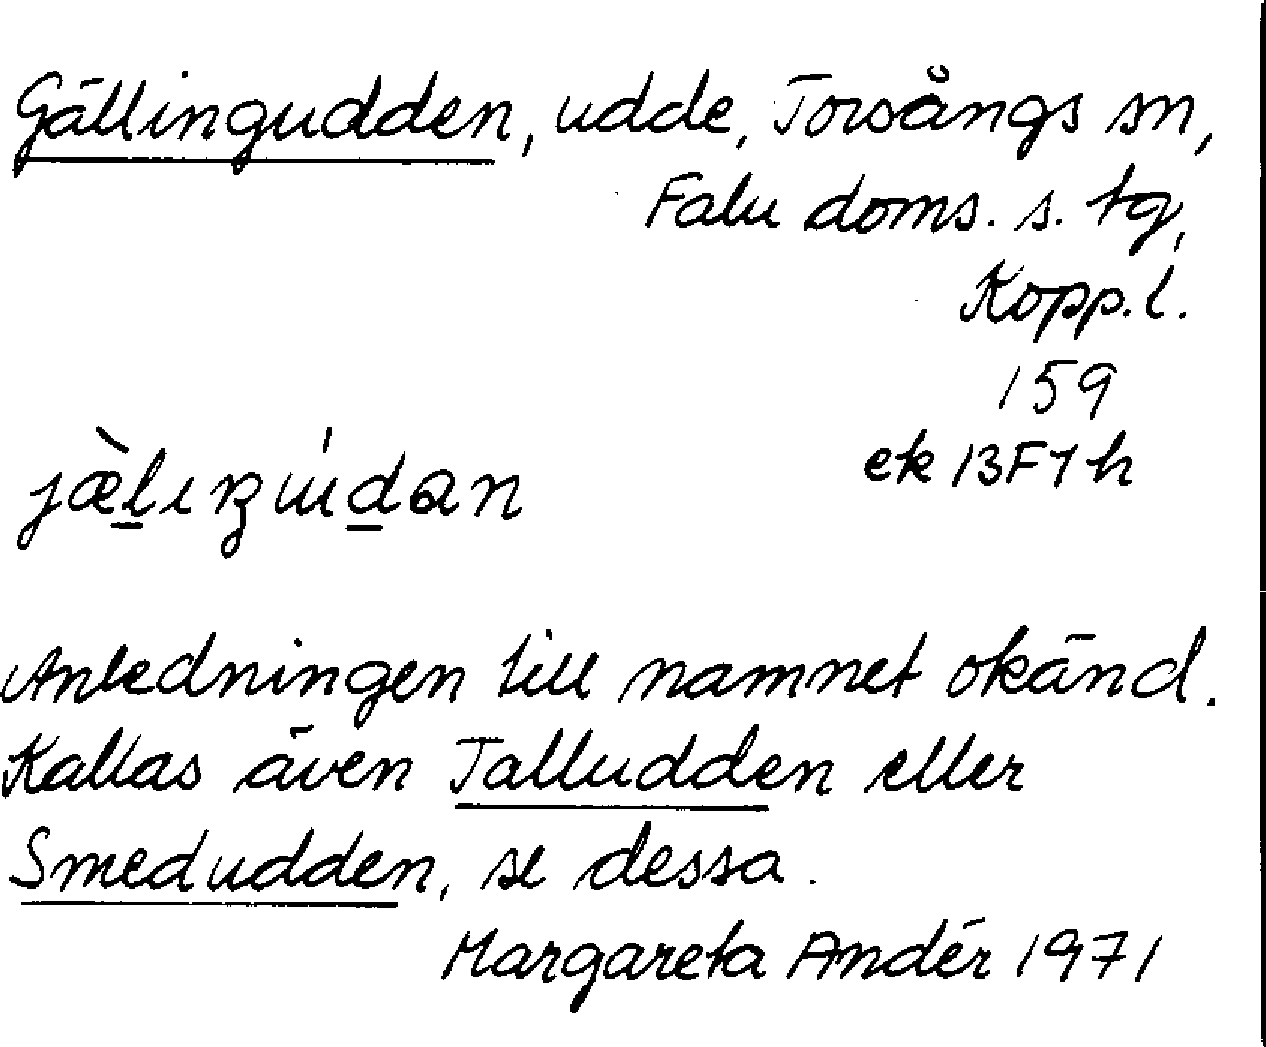 Gällingudden, udde, Torsångs sn,
Falu doms. s. tg,
Kopp. l.
159
ek 13F7h
jæ̀lıŋɯ́dan
Anledningen till namnet okänd.
Kallas även Talludden eller
Smedudden, se dessa.
Margareta Andér 1971